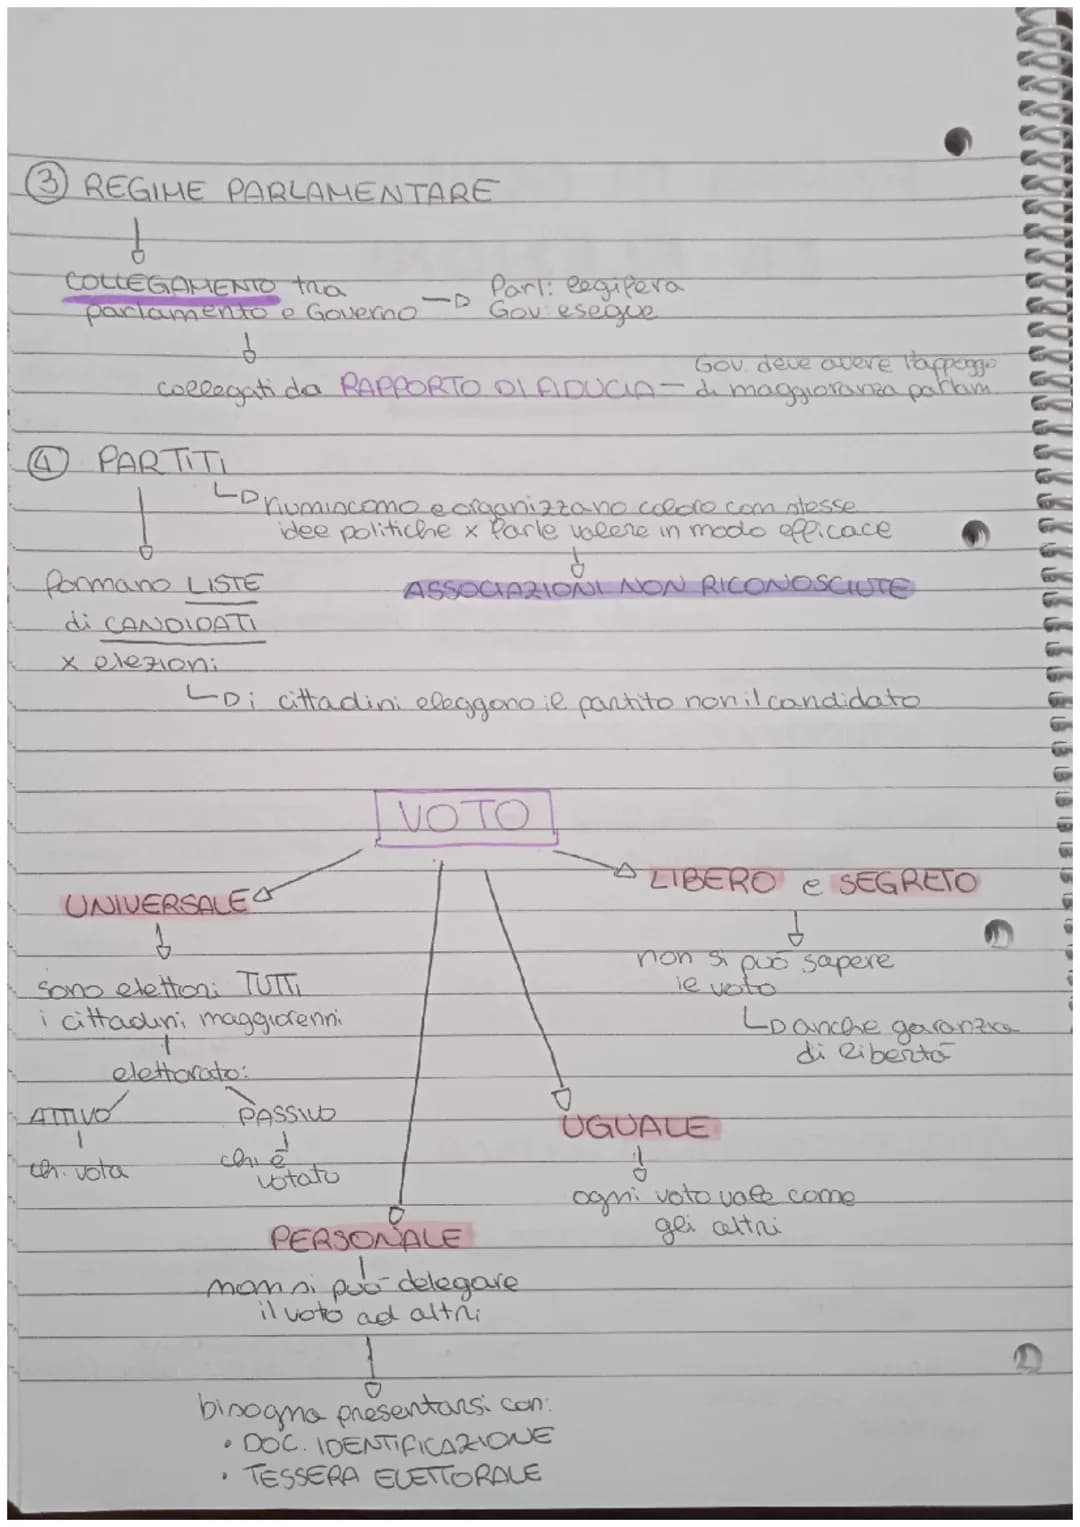 ③ REGIME PARLAMENTARE
COLLEGAMENTO tra
parlamento e Governo
Parl: legifera
Gov: esegue
collegati da RAPPORTO DI FIDUCIA - Gov deve avere l'appoggio
di maggioranza parlam
④ PARTITI
riuniscono e organizzano coloro con stesse
idee politiche x farle valere in modo efficace
ASSOCIAZIONI NON RICONOSCIUTE
formano LISTE
di CANDIDATI
x elezioni
i cittadini eleggono il partito non il candidato
VOTO
UNIVERSALE
sono elettori TUTTI
i cittadini maggiorenni
elettorato:
ATTIVO
chi vota
PASSIVO
chi è
votato
LIBERO e SEGRETO
non si può sapere
il voto
anche garanzia
di libertà
UGUALE
ogni voto vale come
gli altri
PERSONALE
non si può delegare
il voto ad altri
bisogna presentarsi con:
• DOC. IDENTIFICAZIONE
• TESSERA ELETTORALE